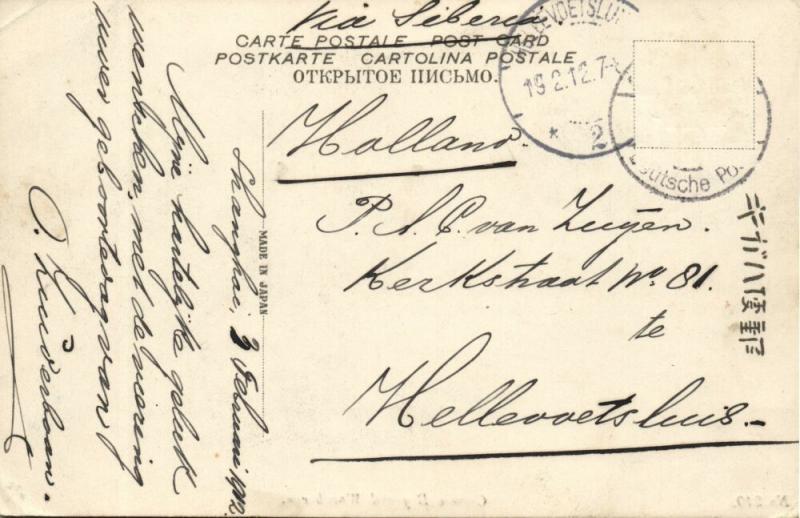 Via Siberia.
CARTE POSTALE POST CARD
POSTKARTE CARTOLINA POSTALE
ОТКРЫТОЕ ПИСЬМО.
HELLEVOETSLUIS
19.2.12.7-
* 2
Deutsche Po
Holland.
P. A. C. van Zuijen.
Kerkstraat No. 81.
te
Hellevoetsluis-
MADE IN JAPAN
Shanghai, 3 Februari 1912.
Mijn hartelijke geluk
wenschen, met de viering
uwer geboortedag van